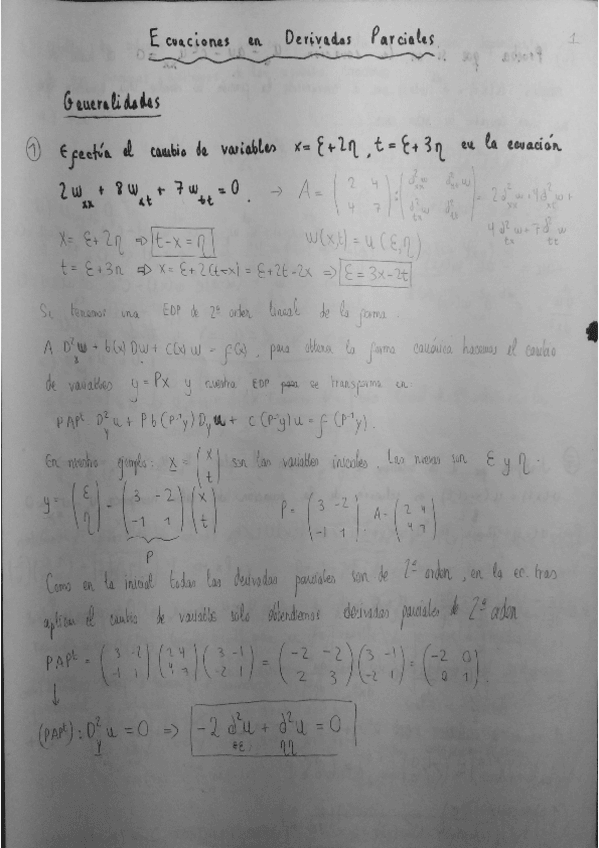 Ecuaciones en Derivadas Parciales
1
Generalidades
① Efectúa el cambio de variables x = ξ + 2η, t = ξ + 3η en la ecuación
2w_xx + 8w_xt + 7w_tt = 0. → A = (2 4; 4 7) : (∂²_xx w ∂²_xt w; ∂²_tx w ∂²_tt w) = 2∂²_xx w + 4∂²_xt w +
4∂²_tx w + 7∂²_tt w
x = ξ + 2η ⇒ t - x = η w(x,t) = u(ξ,η)
t = ξ + 3η ⇒ x = ξ + 2(t-x) = ξ + 2t - 2x ⇒ ξ = 3x - 2t
Si tenemos una EDP de 2º orden lineal de la forma
A D²_x w + b(x) Dw + c(x) w = f(x), para obtener la forma canónica hacemos el cambio
de variables y = Px y nuestra EDP se transforma en
PAPᵗ D²_y u + P b(P⁻¹y) D_y u + c(P⁻¹y) u = f(P⁻¹y).
En nuestro ejemplo: x = (x; t) son las variables iniciales. Las nuevas son ξ y η.
y = (ξ; η) = (3 -2; -1 1) (x; t) P = (3 -2; -1 1) A = (2 4; 4 7)
P
Como en la inicial todas las derivadas parciales son de 2º orden, en la ec. tras
aplicar el cambio de variable solo obtendremos derivadas parciales de 2º orden
PAPᵗ = (3 -2; -1 1) (2 4; 4 7) (3 -1; -2 1) = (-2 -2; 2 3) (3 -1; -2 1) = (-2 0; 0 1).
↓
(PAPᵗ) : D²_y u = 0 ⇒ -2 ∂²_ξξ u + ∂²_ηη u = 0